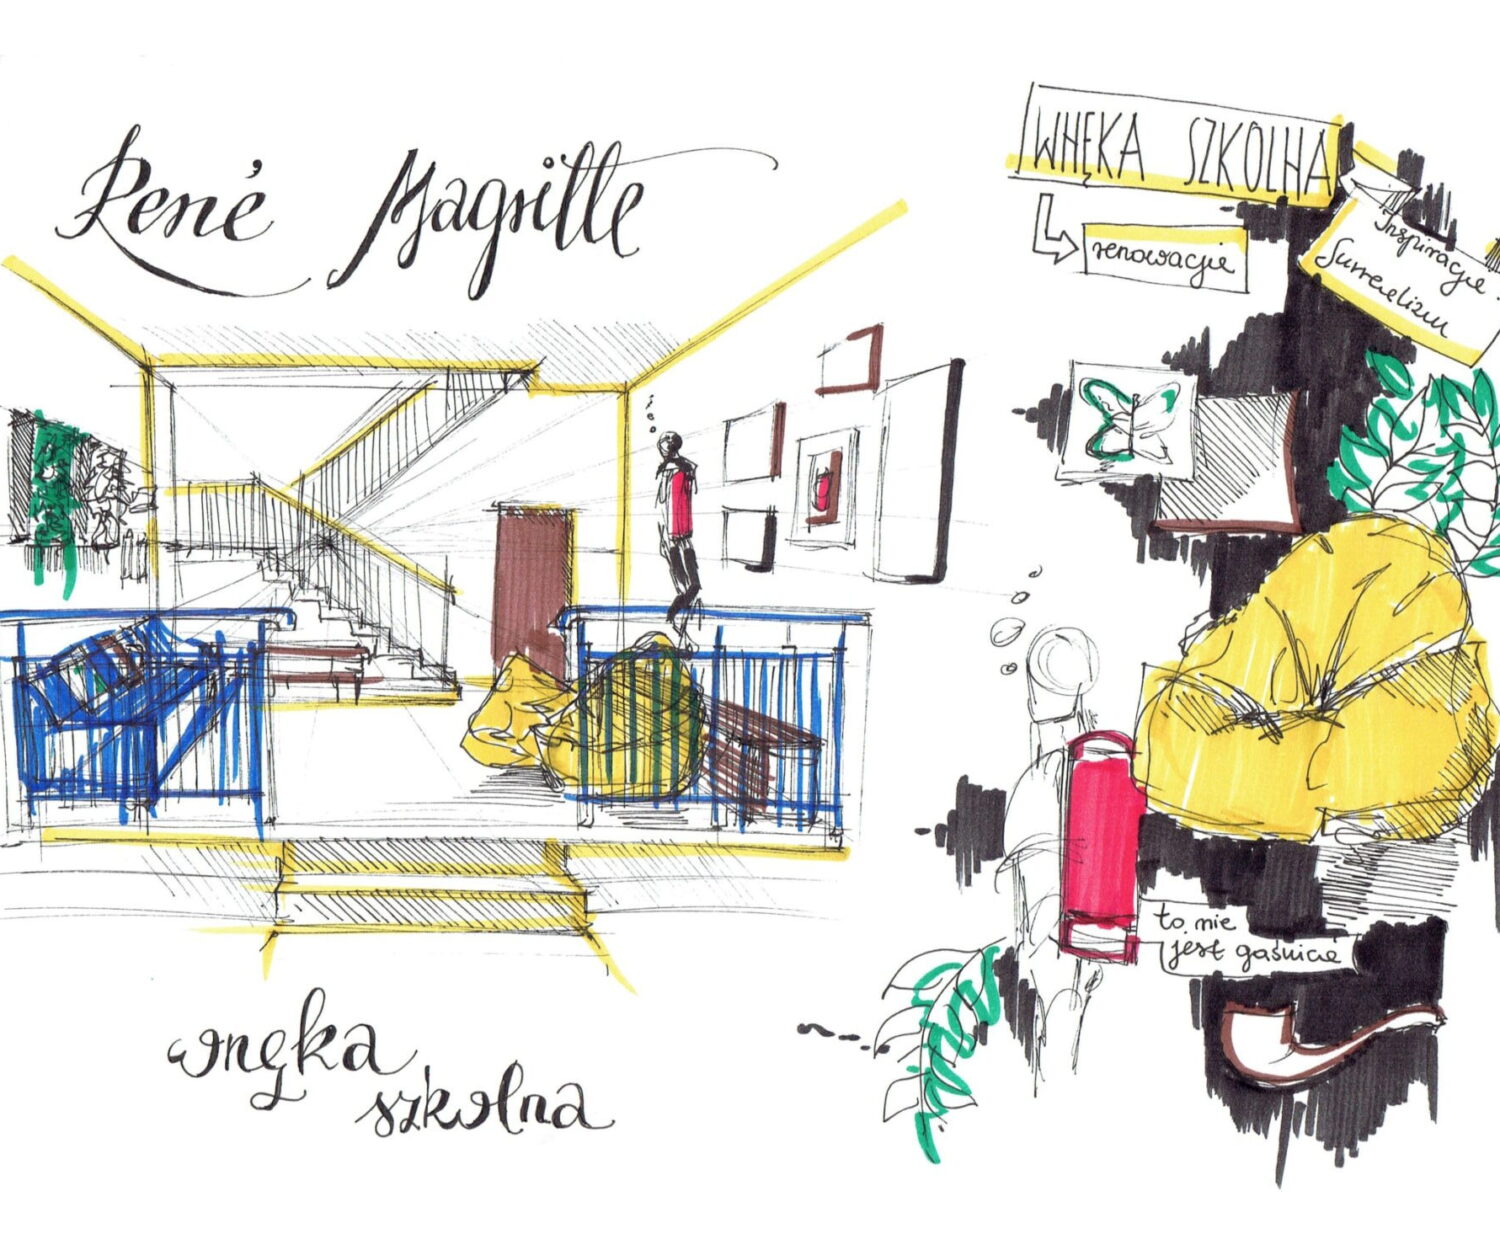 René Magritte
WNĘKA SZKOLNA
renowacje
Inspiracje:
Surrealizm
to nie
jest gaśnica
wnęka
szkolna